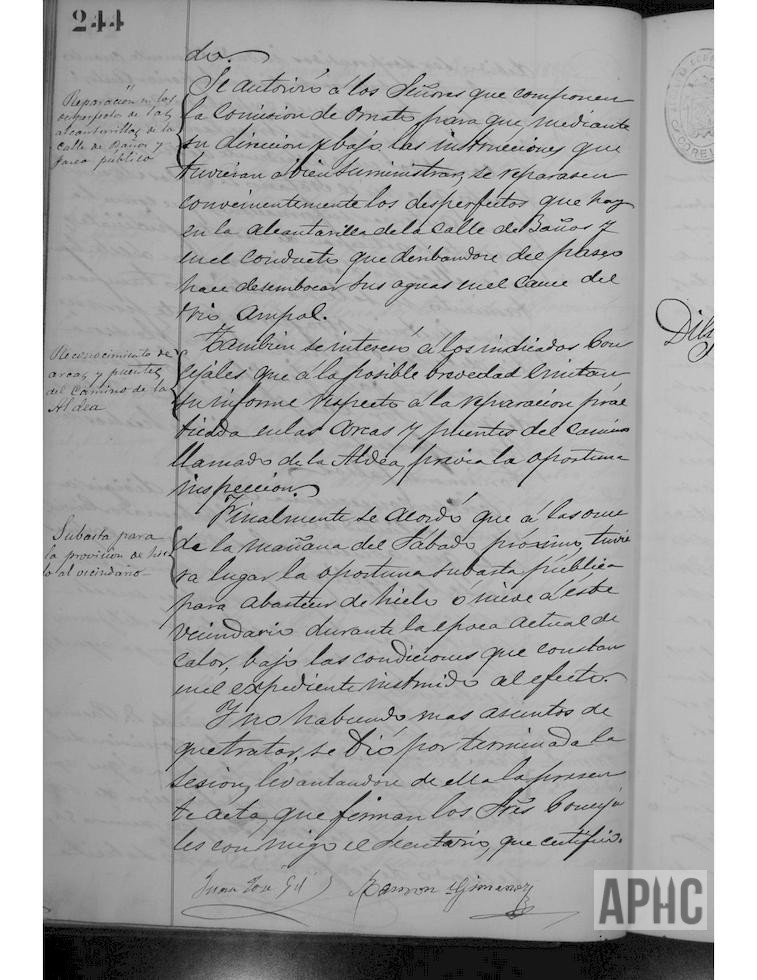 244
do.
Reparacion en los
desperfectos de las
alcantarillas de la
calle de Baños y
paseo público
Se autorizó á los Señores que componen
la Comision de Ornato, para que mediante
su direccion y bajo las instrucciones que
tuvieran á bien suministrar, se reparasen
convenientemente los desperfectos que hay
en la alcantarilla de la calle de Baños y
en el conducto que deribandose del paseo
hace desembocar sus aguas en el cauce del
rio
Reconocimiento de
arcas y puentes
del Camino de la
Aldea
Tambien se interesó á los indicados Con
cejales que á la posible brevedad emitan
su informe respecto á la reparacion prac
ticada en las arcas y puentes del camino
llamado de la Aldea, previa la oportuna
inspeccion.
Subasta para
la provision de hie
lo al vecindario
Finalmente se acordó que á las once
de la mañana del Sábado próximo, tuvie
ra lugar la oportuna subasta pública
para abastecer de hielo o nieve á éste
vecindario durante la época actual de
calor, bajo las condiciones que constan
en el expediente instruido al efecto.
Y no habiendo mas asuntos de
que tratar, se dió por terminada la
sesion, levantandose de ella la presen
te acta, que firman los Srẽs Conceja
les conmigo el Secretario, que certifico.
Juan José Gil Ramon Gimenez
APHC